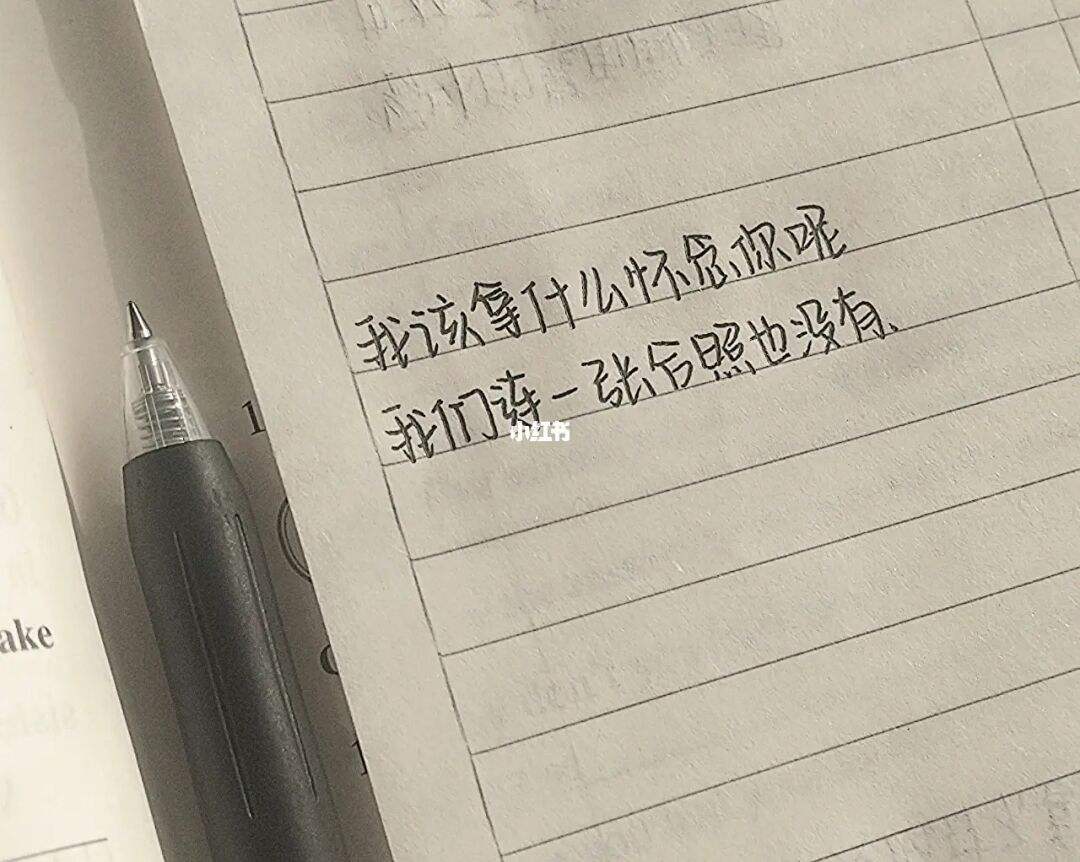 我该拿什么怀念你呢
我们连一张合照也没有、
小红书
ake